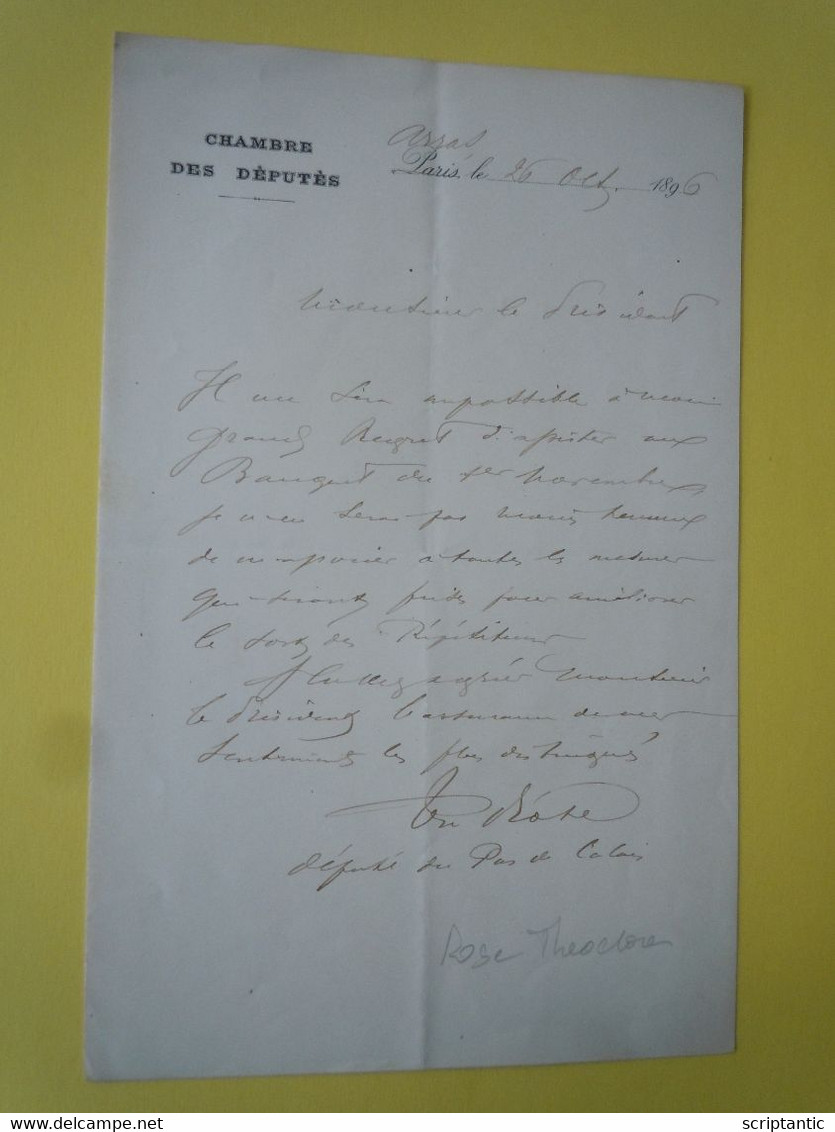 CHAMBRE
DES DÉPUTÉS
Arras
Paris, le 26 Oct. 1896
Monsieur le Président
Il me sera impossible à mon
grand Regret d'assister au
Banquet du 1er Novembre
je n'en serai pas moins heureux
de m'associer à toutes les mesures
qui seront prises pour améliorer
le sort des Répétiteurs
Veuillez agréer Monsieur
le Président l'assurance de mes
sentiments les plus distingués
Th Rose
député du Pas de Calais
Rose Theodore
delcampe.net
scriptantic